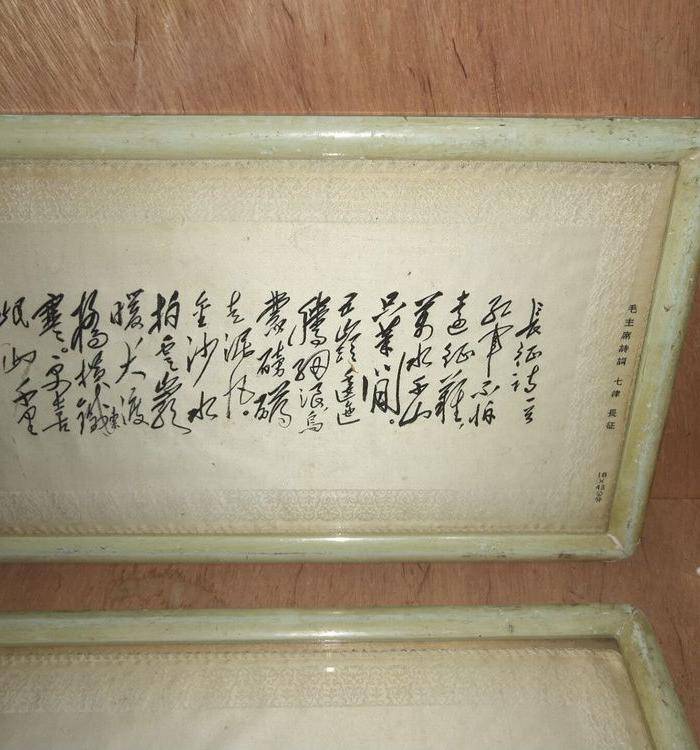 毛主席詩詞 七律 長征
18×45公分
長征詩一首
紅軍不怕
遠征難,
萬水千山
只等閒。
五嶺逶迤
騰細浪烏
蒙磅礴
走泥丸。
金沙水
拍雲崖
暖大渡
橋橫鐵索
寒。更喜
岷山千里